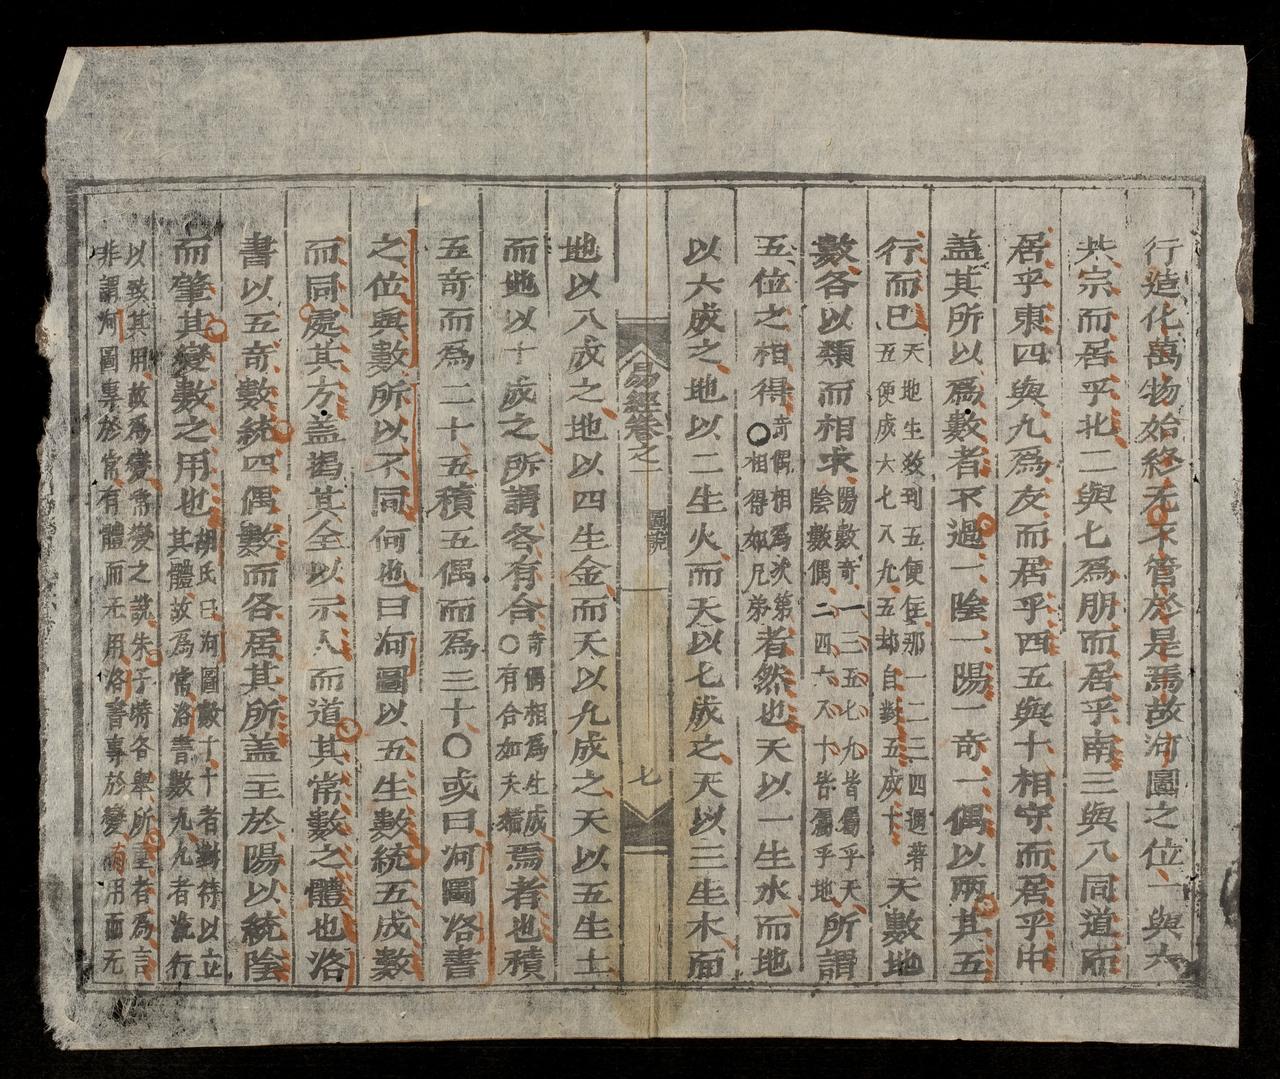 行造化萬物始終无不管於是焉故河圖之位一與六
共宗而居乎北二與七爲朋而居乎南三與八同道而
居乎東四與九爲友而居乎西五與十相守而居乎中
蓋其所以爲數者不過一陰一陽一奇一偶以兩其五
行而已天地生数到五便住那一二三四遇著
五便成六七八九五却自對五成十天數地
數各以類而相求陽數奇一三五七九皆屬乎天
陰數偶二四六八十皆屬乎地所謂
五位之相得奇偶相爲次第
○相得如兄弟者然也天以一生水而地
以六成之地以二生火而天以七成之天以三生木而
易經卷之一
圖說
七
地以八成之地以四生金而天以九成之天以五生土
而地以十成之所謂各有合奇偶相爲生成
○有合如夫婦焉者也積
五奇而爲二十五積五偶而爲三十○或曰河圖洛書
之位與數所以不同何也曰河圖以五生數統五成數
而同處其方盖揭其全以示人而道其常數之體也洛
書以五奇數統四偶數而各居其所盖主於陽以統陰
而肇其變數之用也胡氏曰河圖數十十者對待以立
其體故爲常洛書數九九者流行
以致其用故爲變常變之說朱子特各舉所重者為言
非謂河圖專於常有體而无用洛書專於變有用而无